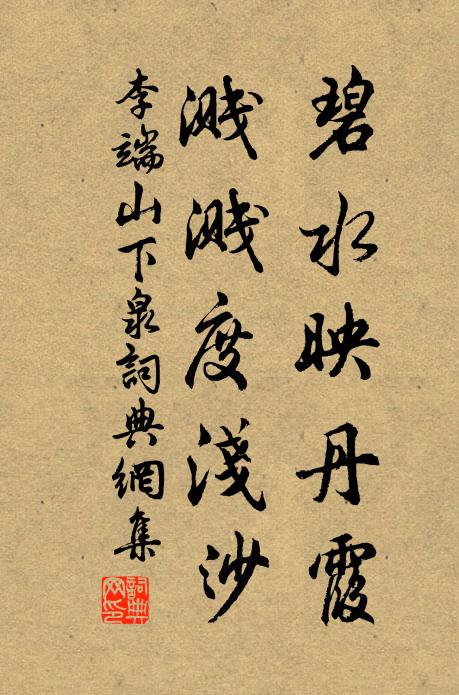 碧水映丹霞
濺濺度淺沙
李端山下泉詞典網集
詞典網印